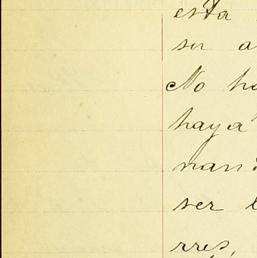 esta
su a
No ha
haya
man
ser
rres,